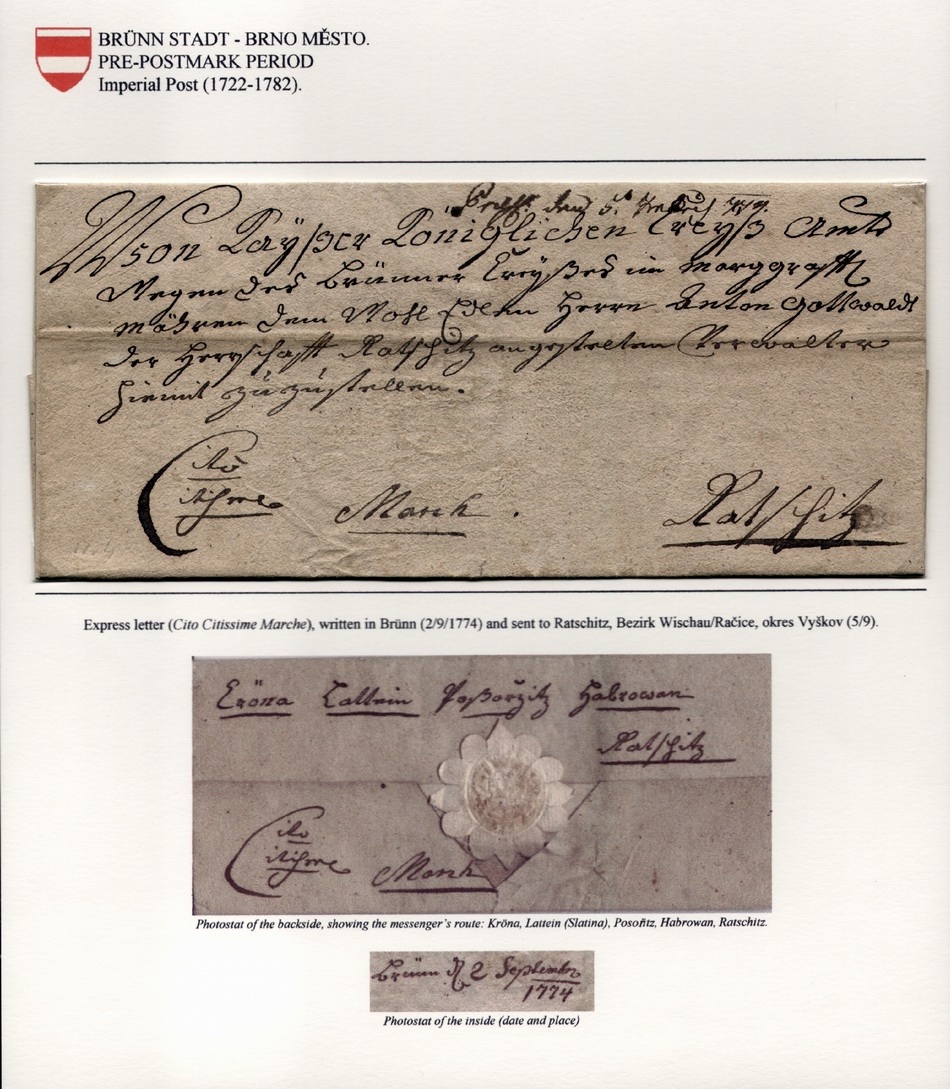 BRÜNN STADT - BRNO MĚSTO.
PRE-POSTMARK PERIOD
Imperial Post (1722-1782).
den 5t
Von Kaÿßer Königlichen Creÿß Amts
Wegen des Brünner Creÿßes im Marggrafft
Mähren dem Wohl Edlen Herrn Anton Gottwaldt
der Herrschafft Ratschitz angestelten Verwalter
hiemit zuzustellen.
Cito
Citissime
March .
Ratschitz
Express letter (Cito Citissime Marche), written in Brünn (2/9/1774) and sent to Ratschitz, Bezirk Wischau/Račice, okres Vyškov (5/9).
Cröna Lattein Posoržitz Habrowan
Ratschitz
Cito
Citissime
March
Photostat of the backside, showing the messenger's route: Kröna, Lattein (Slatina), Posořitz, Habrowan, Ratschitz.
Brünn d 2 Septembr
1774
Photostat of the inside (date and place)